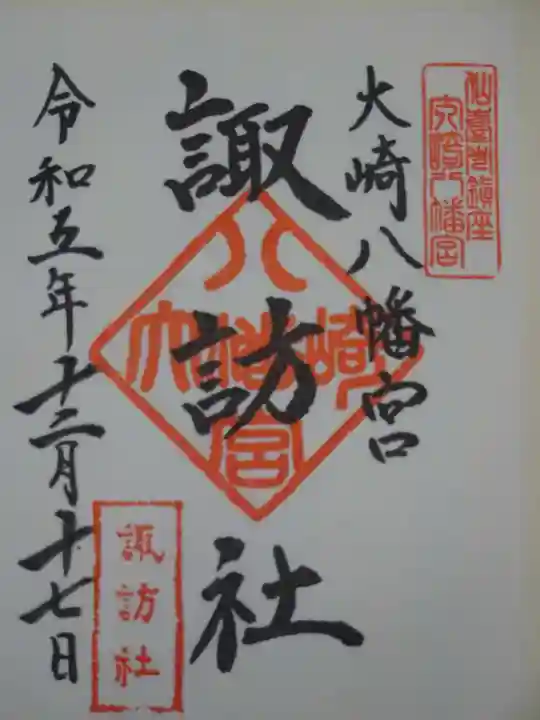 仙臺市鎮座
大崎八幡宮
大崎八幡宮
諏訪社
八
大幡崎
宮
諏訪社
令和五年十二月十七日